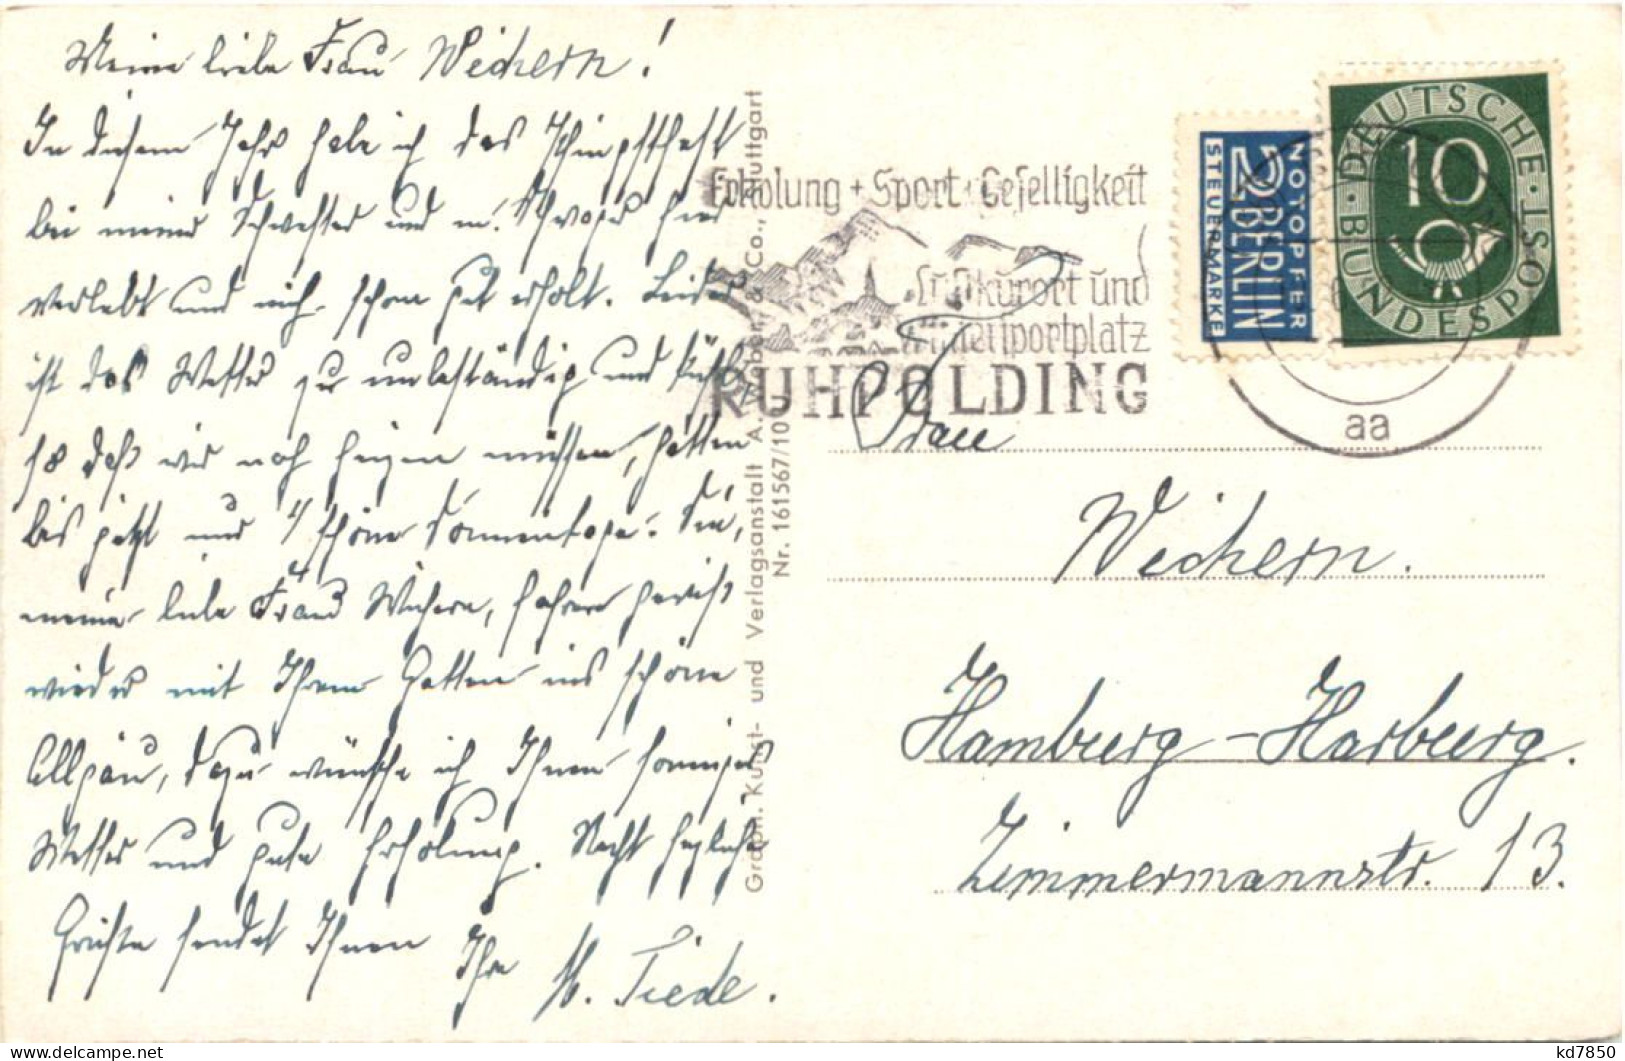 Meine liebe Frau Wichern!
In diesem Jahr habe ich das Pfingstfest
bei meiner Schwester und m. Schwager hier
verlebt und mich schon gut erholt. Leider
ist das Wetter zu unbeständig und kühl
so daß wir noch heizen müssen, hatten
bis jetzt nur 4 schöne Sonnentage. Sie,
meine liebe Frau Wichern, fahren gewiß
wieder mit Ihrem Gatten ins schöne
Allgäu, dazu wünsche ich Ihnen sonniges
Wetter und gute Erholung. Recht herzliche
Grüße sendet Ihnen Ihre M. Tiede.
Graph. Kunst- und Verlagsanstalt A. Weber & Co., Stuttgart
Nr. 161567/10
Erholung + Sport + Geselligkeit
Luftkurort und
Wintersportplatz
RUHPOLDING
NOTOPFER
2 BERLIN
STEUERMARKE
DEUTSCHE · BUNDESPOST ·
10
aa
Frau
Wichern.
Hamburg-Harburg.
Zimmermannstr. 13.
kd7850